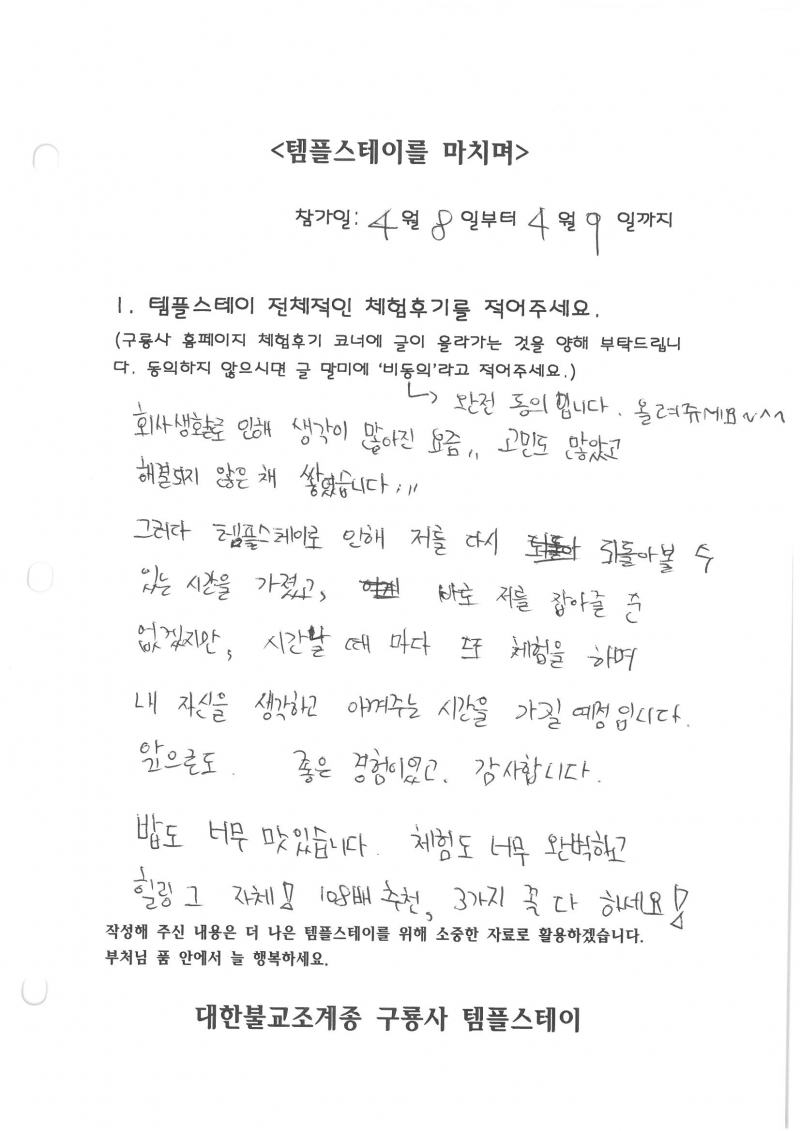 <템플스테이를 마치며>
참가일: 4월 8일부터 4월 9일까지
1. 템플스테이 전체적인 체험후기를 적어주세요.
(구룡사 홈페이지 체험후기 코너에 글이 올라가는 것을 양해 부탁드립니
다. 동의하지 않으시면 글 말미에 '비동의'라고 적어주세요.)
↳ 완전 동의 입니다. 올려쥬세요~^^
회사생활로 인해 생각이 많아진 요즘,, 고민도 많았고
해결되지 않은 채 쌓였습니다;;;
그러다 템플스테이로 인해 저를 다시 되돌아볼 수
있는 시간을 가졌고, 바로 저를 잡아줄 순
없겠지만, 시간날 때 마다 또 체험을 하며
내 자신을 생각하고 아껴주는 시간을 가질 예정입니다.
앞으로도. 좋은 경험이었고, 감사합니다.
밥도 너무 맛있습니다. 체험도 너무 완벽하고
힐링 그 자체! 108배 추천, 3가지 꼭 다 하세요!
작성해 주신 내용은 더 나은 템플스테이를 위해 소중한 자료로 활용하겠습니다.
부처님 품 안에서 늘 행복하세요.
대한불교조계종 구룡사 템플스테이